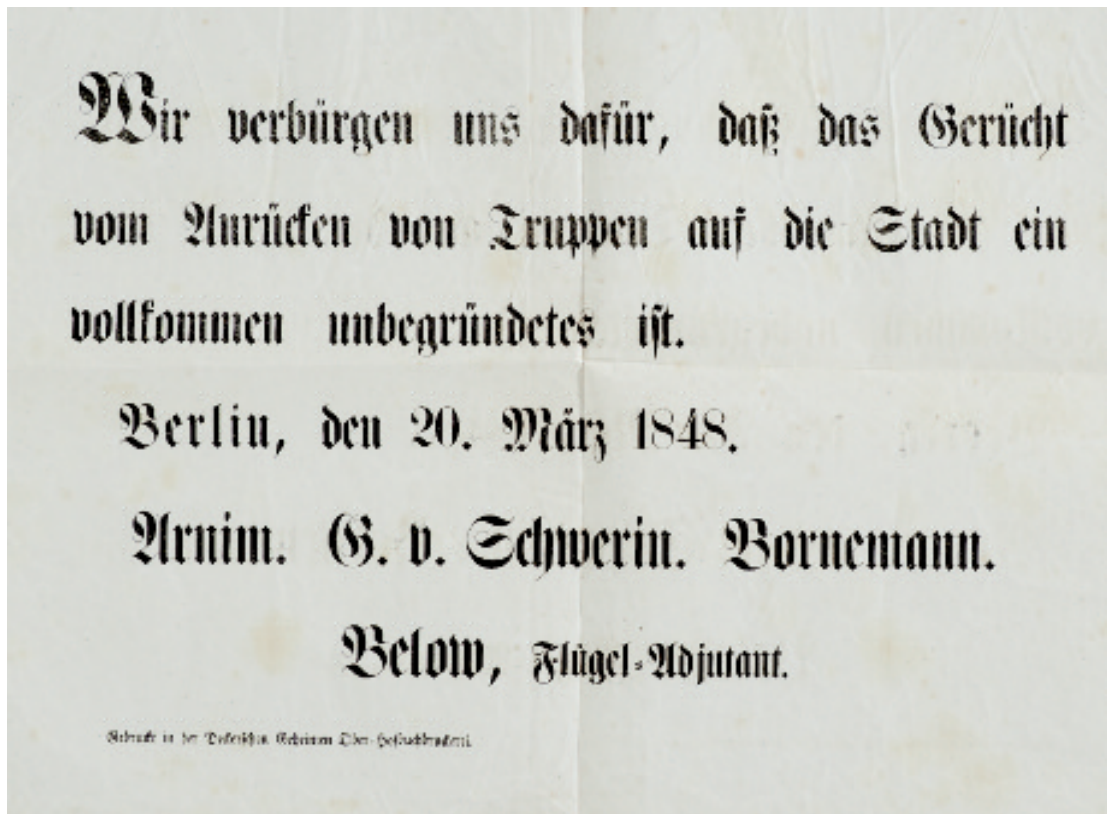 Wir verbürgen uns dafür, daß das Gerücht
vom Anrücken von Truppen auf die Stadt ein
vollkommen unbegründetes ist.
Berlin, den 20. März 1848.
Arnim. G. v. Schwerin. Bornemann.
Below, Flügel-Adjutant.
Gedruckt in der Deckerschen Geheimen Ober-Hofbuchdruckerei.